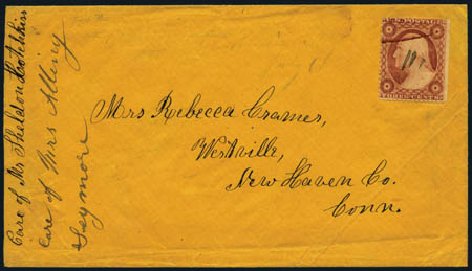 Mrs Rebecca Cramer,
Westville,
New Haven Co.
Conn.
Care of Mr Sheldon Hotchkiss
Care of Mrs Alling
Seymore
THREE CENTS